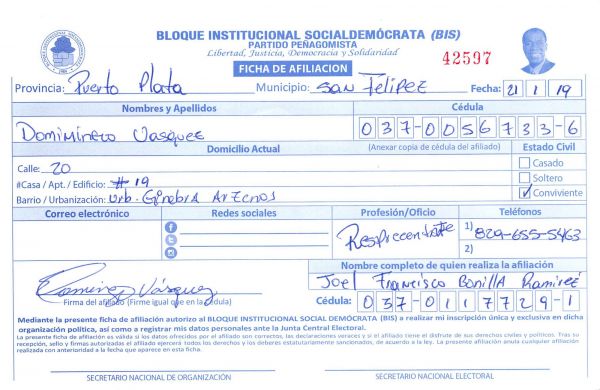 BLOQUE INSTITUCIONAL SOCIALDEMÓCRATA (BIS)
PARTIDO PEÑAGOMISTA
Libertad, Justicia, Democracia y Solidaridad
FICHA DE AFILIACION
42597
Provincia: Puerto Plata Municipio: San Felipez Fecha: 21 1 19
Nombres y Apellidos Cédula
Domiminero Vasquez 037-0056733-6
Domicilio Actual (Anexar copia de cédula del afiliado) Estado Civil
Calle: 20 Casado
#Casa / Apt. / Edificio: #19 Soltero
Barrio / Urbanización: Urb. Ginebra Arzenos Conviviente
Correo electrónico Redes sociales Profesión/Oficio Teléfonos
Represcentante 1) 829-655-5463
2)
Nombre completo de quien realiza la afiliación
Joel Francisco Bonilla Ramirez
Domingo Vásquez
Firma del afiliado (Firme igual que en la cédula) Cédula: 037-0117729-1
Mediante la presente ficha de afiliación autorizo al BLOQUE INSTITUCIONAL SOCIAL DEMÓCRATA (BIS) a realizar mi inscripción única y exclusiva en dicha
organización política, así como a registrar mis datos personales ante la Junta Central Electoral.
La presente ficha de afiliación es válida si los datos ofrecidos por el afiliado son correctos, las declaraciones veraces y si el afiliado tiene el disfrute de sus derechos civiles y políticos. Tras su
recepción, sello y firmas autorizadas el afiliado ejercerá todos los derechos y los deberes estatutariamente sancionados, de acuerdo a la ley. La presente afiliación anula cualquier afiliación
realizada con anterioridad a la fecha que aparece en esta ficha.
SECRETARIO NACIONAL DE ORGANIZACIÓN SECRETARIO NACIONAL ELECTORAL